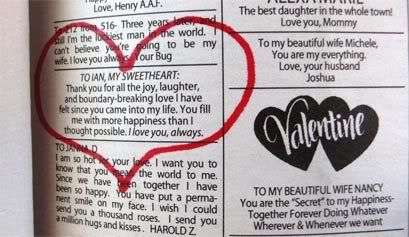 Love, Henry A.A.F.
To 212 from 516- Three years later, and
still I'm the luckiest man in the world. I
can't believe you're going to be my
wife. I love you always. Your Bug
TO IAN, MY SWEETHEART:
Thank you for all the joy, laughter,
and boundary-breaking love I have
felt since you came into my life. You fill
me with more happiness than I
thought possible. I love you, always.
TO JANNA D
I am so hot for your love. I want you to
know that you mean the world to me.
Since we have been together I have
been so happy. You have put a perma-
nent smile on my face. I wish I could
send you a thousand roses. I send you
a million hugs and kisses. HAROLD Z.
The best daughter in the whole town!
Love you, Mommy
To my beautiful wife Michele,
You are my everything.
Love, your husband
Joshua
Valentine
TO MY BEAUTIFUL WIFE NANCY
You are the "Secret" to my Happiness-
Together Forever Doing Whatever
Wherever & Whenever we want